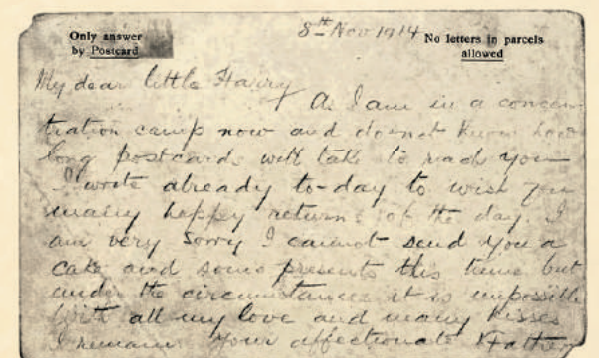 Only answer
by Postcard
8th Nov 1914
No letters in parcels
allowed
My dear little Harry
As I am in a concen
tration camp now and do not know how
long postcards will take to reach you
I wrote already to-day to wish you
many happy returns of the day. I
am very sorry I cannot send you a
cake and some presents this time but
under the circumstances it is impossible
With all my love and many kisses
I remain Your affectionate Father